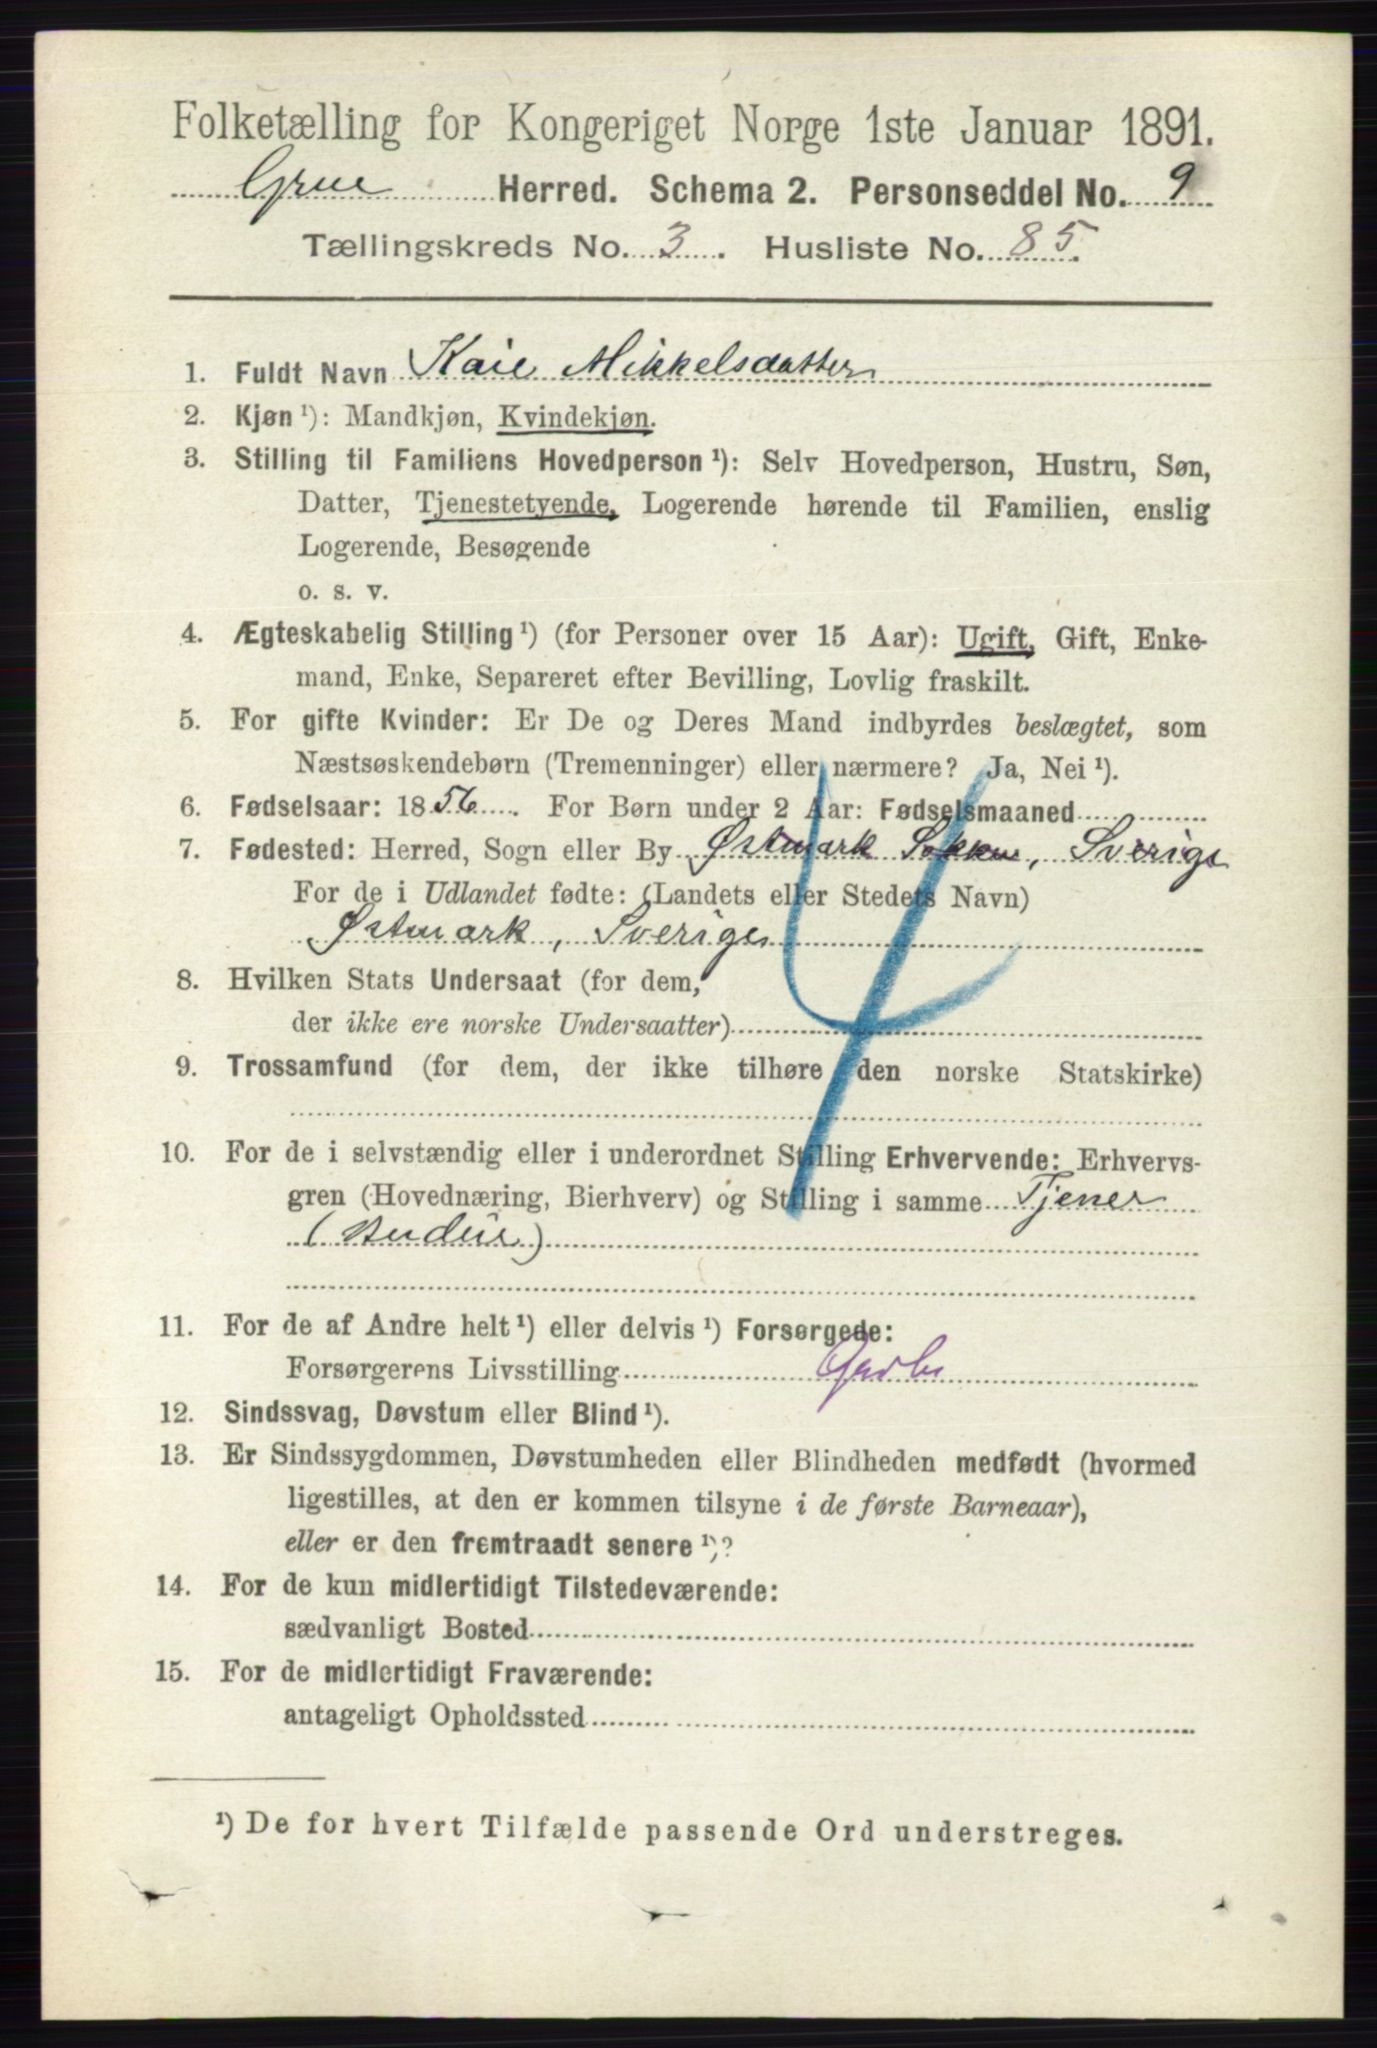 Folketælling for Kongeriget Norge 1ste Januar 1891.
Grue Herred. Schema 2. Personseddel No. 9
Tællingskreds No. 3. Husliste No. 85.
1. Fuldt Navn Kaie Mikkelsdatter
2. Kjøn ¹): Mandkjøn, Kvindekjøn.
3. Stilling til Familiens Hovedperson ¹): Selv Hovedperson, Hustru, Søn,
Datter, Tjenestetyende, Logerende hørende til Familien, enslig
Logerende, Besøgende
o. s. v.
4. Ægteskabelig Stilling ¹) (for Personer over 15 Aar): Ugift, Gift, Enke-
mand, Enke, Separeret efter Bevilling, Lovlig fraskilt.
5. For gifte Kvinder: Er De og Deres Mand indbyrdes beslægtet, som
Næstsøskendebørn (Tremenninger) eller nærmere? Ja, Nei ¹).
6. Fødselsaar: 1856. For Børn under 2 Aar: Fødselsmaaned
7. Fødested: Herred, Sogn eller By Østmark Sokken, Sverige
For de i Udlandet fødte: (Landets eller Stedets Navn)
Østmark, Sverige
8. Hvilken Stats Undersaat (for dem,
der ikke ere norske Undersaatter)
4
9. Trossamfund (for dem, der ikke tilhøre den norske Statskirke)
10. For de i selvstændig eller i underordnet Stilling Erhvervende: Erhvervs-
gren (Hovednæring, Bierhverv) og Stilling i samme Tjener
11. For de af Andre helt ¹) eller delvis ¹) Forsørgede:
Forsørgerens Livsstilling
12. Sindssvag, Døvstum eller Blind ¹).
13. Er Sindssygdommen, Døvstumheden eller Blindheden medfødt (hvormed
ligestilles, at den er kommen tilsyne i de første Barneaar),
eller er den fremtraadt senere ¹)?
14. For de kun midlertidigt Tilstedeværende:
sædvanligt Bosted
15. For de midlertidigt Fraværende:
antageligt Opholdssted
¹) De for hvert Tilfælde passende Ord understreges.